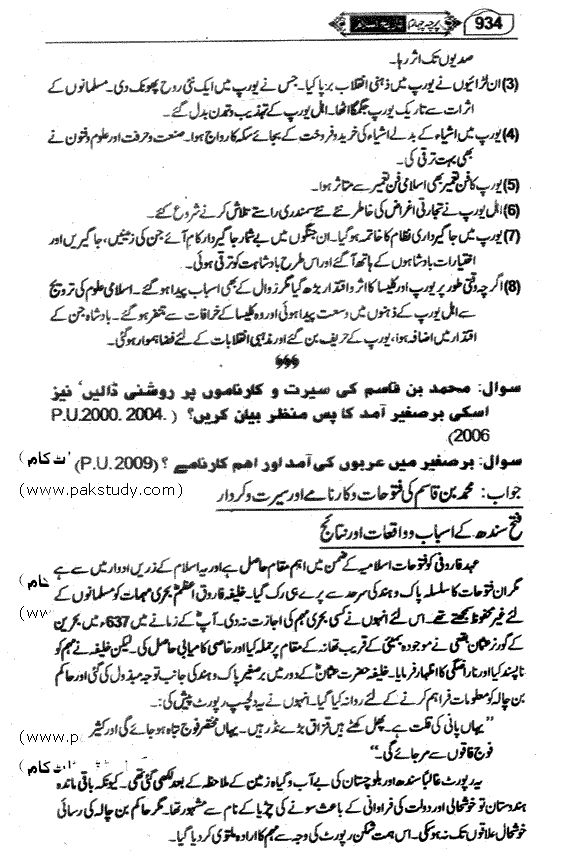 934 پرچہ چہارم تاریخ اسلام
صدیوں تک اثر رہا۔
(3) ان لڑائیوں نے یورپ میں ذہنی انقلاب برپا کیا۔ جس نے یورپ میں ایک نئی روح پھونک دی۔ مسلمانوں کے
اثرات سے تاریک یورپ جگمگا اٹھا۔ اہل یورپ کے تہذیب و تمدن بدل گئے۔
(4) یورپ میں اشیاء کے بدلے اشیاء کی خرید و فروخت کے بجائے سکہ کا رواج ہوا۔ صنعت و حرفت اور علوم و فنون نے
بھی بہت ترقی کی۔
(5) یورپ کا فن تعمیر بھی اسلامی فن تعمیر سے متاثر ہوا۔
(6) اہل یورپ نے تجارتی اغراض کی خاطر نئے نئے سمندری راستے تلاش کرنے شروع کئے۔
(7) یورپ میں جاگیرداری نظام کا خاتمہ ہو گیا۔ ان جنگوں میں بے شمار جاگیردار کام آئے جن کی زمینیں، جاگیریں اور
اختیارات بادشاہوں کے ہاتھ آ گئے اور اس طرح بادشاہت کو ترقی ہوئی۔
(8) اگرچہ وقتی طور پر یورپ اور کلیسا کا اثر و اقتدار بڑھ گیا مگر زوال کے بھی اسباب پیدا ہو گئے۔ اسلامی علوم کی ترویج
سے اہل یورپ کے ذہنوں میں وسعت پیدا ہوئی اور وہ کلیسا کے خرافات سے متنفر ہو گئے۔ بادشاہ جن کے
اقتدار میں اضافہ ہوا، یورپ کے حریف بن گئے اور مذہبی انقلابات کے لئے فضا ہموار ہو گئی۔
§§§
سوال: محمد بن قاسم کی سیرت و کارناموں پر روشنی ڈالیں' نیز
اسکی برصغیر آمد کا پس منظر بیان کریں؟ (P.U.2000. 2004.
2006)
سوال: برصغیر میں عربوں کی آمد اور اہم کارنامے؟ (P.U.2009) ٹ کام)
جواب: محمد بن قاسم کی فتوحات و کارنامے اور سیرت و کردار (www.pakstudy.com)
فتح سندھ کے اسباب و واقعات اور نتائج
عہد فاروقی کو فتوحات اسلامیہ کے ضمن میں اہم مقام حاصل ہے اور یہ اسلام کے زریں ادوار میں سے ہے
مگر ان فتوحات کا سلسلہ پاک و ہند کی سرحد سے پرے ہی رک گیا۔ خلیفہ فاروق اعظمؓ بحری مہمات کو مسلمانوں کے ام)
لئے غیر محفوظ سمجھتے تھے۔ اس لئے انہوں نے کسی بحری مہم کی اجازت نہ دی۔ آپؓ کے زمانے میں 637ء میں بحرین (ww
کے گورنر عثمان ثقفی نے موجودہ بمبئی کے قریب تھانہ کے مقام پر حملہ کیا اور خاصی کامیابی حاصل کی۔ لیکن خلیفہ نے مہم کو
ناپسند کیا اور ناراضگی کا اظہار فرمایا۔ خلیفہ حضرت عثمانؓ کے دور میں برصغیر پاک و ہند کی جانب توجہ مبذول کی گئی اور حاکم
بن جالہ کو معلومات فراہم کرنے کے لئے روانہ کیا گیا۔ انہوں نے یہ دلچسپ رپورٹ پیش کی:۔
”یہاں پانی کی قلت ہے۔ پھل کھٹے ہیں قزاق بڑے نڈر ہیں۔ یہاں مختصر فوج تباہ ہو جائے گی اور کثیر (www.pa
فوج فاقوں سے مر جائے گی۔“
یہ رپورٹ غالباً سندھ اور بلوچستان کی بے آب و گیاہ زمین کے ملاحظہ کے بعد لکھی گئی تھی۔ کیونکہ باقی ماندہ ٹ کام)
ہندوستان تو خوشحالی اور دولت کی فراوانی کے باعث سونے کی چڑیا کے نام سے مشہور تھا۔ مگر حاکم بن جالہ کی رسائی
خوشحال علاقوں تک نہ ہو سکی۔ اس ہمت شکن رپورٹ کی وجہ سے مہم کا ارادہ ملتوی کر دیا گیا۔